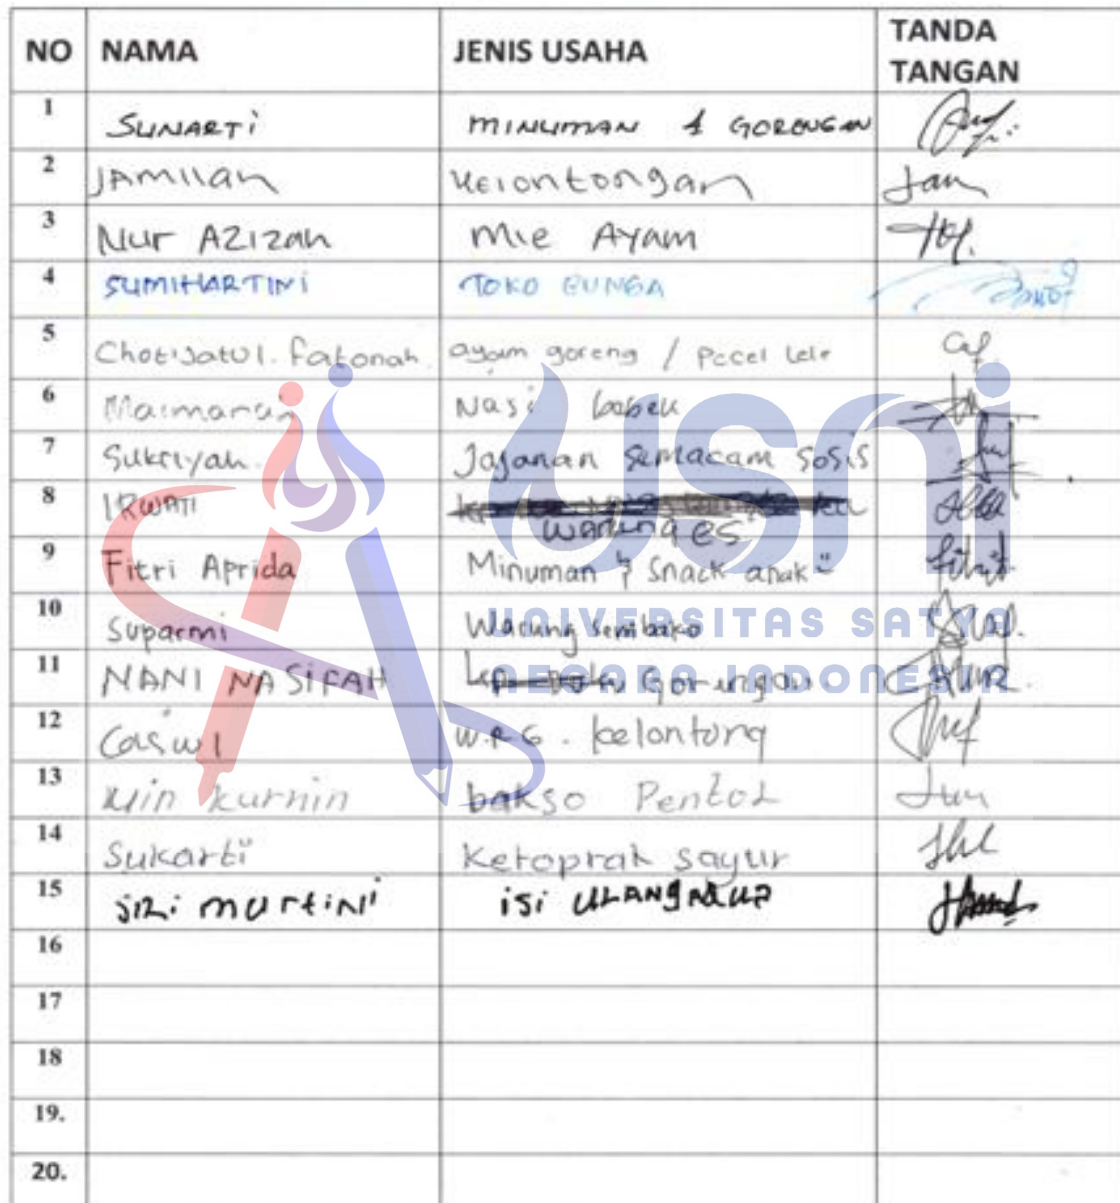 NO NAMA JENIS USAHA TANDA TANGAN
1 SUNARTi MINUMAN & GORENGAN
2 JAMILah Kelontongan
3 Nur AZIZah Mie AYAM
4 SUMIHARTINI TOKO BUNGA
5 Chotijatul. Fatonah. ayam goreng / Pecel lele
6 Maimanah Nasi bebek
7 Sukriyah. Jajanan semacam sosis
8 IRWATI warung es
9 Fitri Aprida Minuman & Snack anak"
10 Suparmi Warung Sembako
11 NANI NASIFAH Gorengan
12 Caswi W.R.G. kelontong
13 kurnin bakso Pentol
14 Sukarti Ketoprak sayur
15 murtini isi ULANG
16
17
18
19.
20.
usni
UNIVERSITAS SATYA
NEGARA INDONESIA